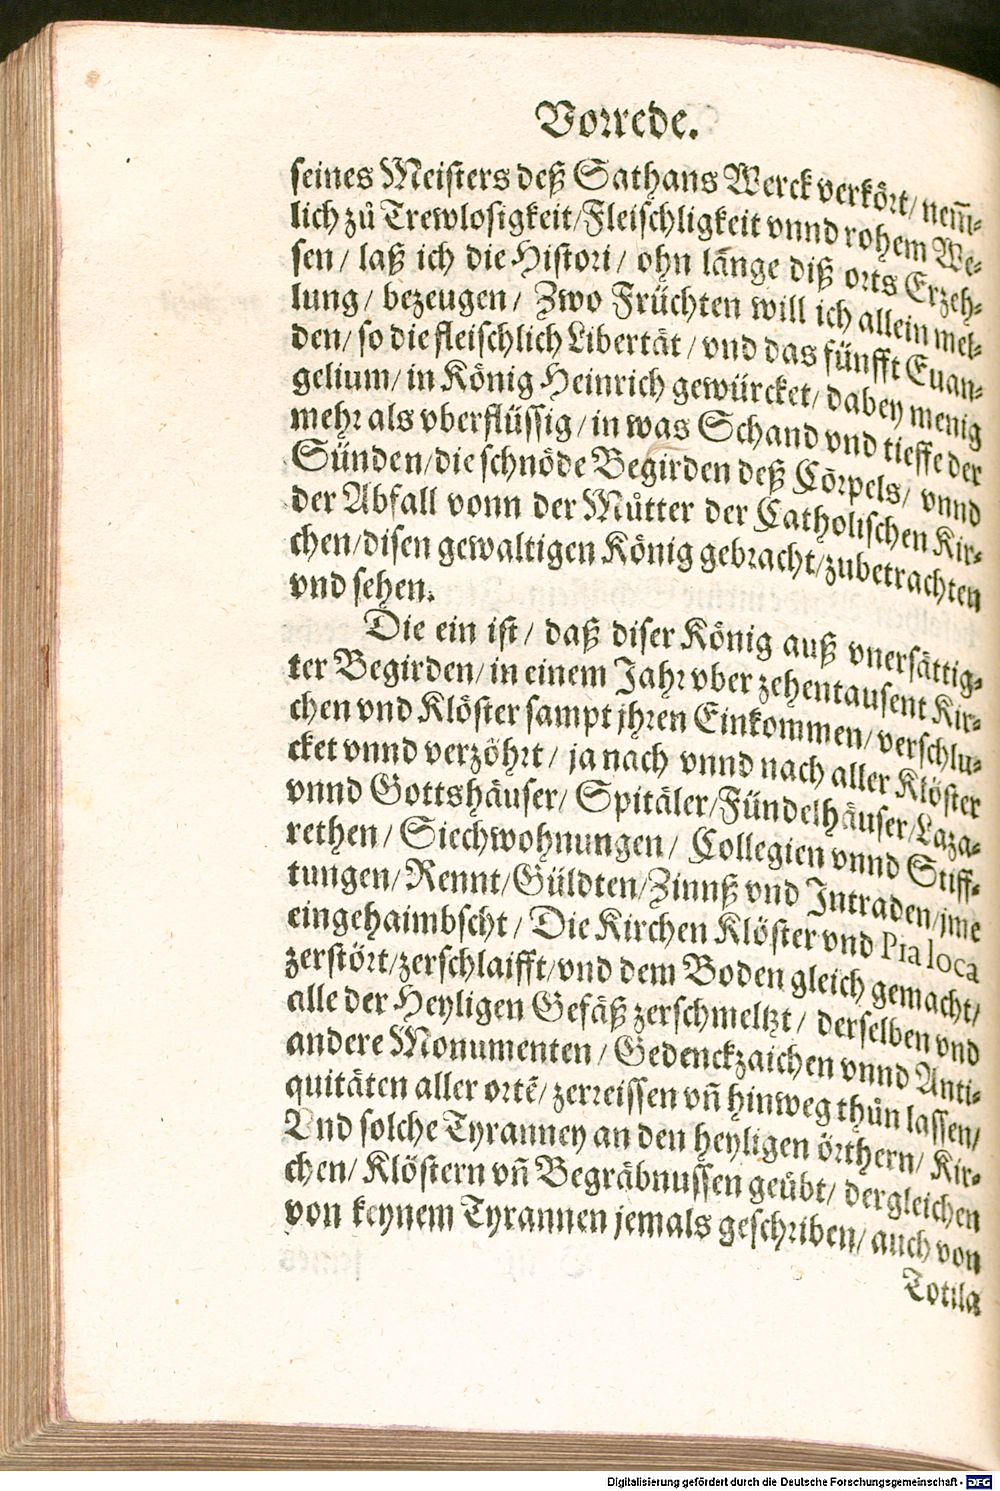 Vorrede.
seines Meisters deß Sathans Werck verkört/ nem̃-
lich zů Trewlosigkeit/Fleischligkeit vnnd rohem We-
sen/ laß ich die Histori/ ohn länge diß orts Erzeh-
lung/ bezeugen/ Zwo Früchten will ich allein mel-
den/ so die fleischlich Libertät/ vnd das fünfft Euan-
gelium/ in König Heinrich gewürcket/ dabey menig
mehr als vberflüssig/ in was Schand vnd tieffe der
Sünden/die schnöde Begirden deß Cörpels/ vnnd
der Abfall vonn der Můtter der Catholischen Kir-
chen/disen gewaltigen König gebracht/zubetrachten
vnd sehen.
Die ein ist/ daß diser König auß vnersättig-
ter Begirden/ in einem Jahr vber zehentausent Kir-
chen vnd Klöster sampt jhren Einkommen/ verschlu-
cket vnnd verzöhrt/ ja nach vnnd nach aller Klöster
vnnd Gottshäuser/ Spitäler/Fündelhäuser/Laza-
rethen/ Siechwohnungen/ Collegien vnnd Stiff-
tungen/ Rennt/Güldten/Zinnß vnd Intraden/jme
eingehaimbscht/ Die Kirchen Klöster vnd Pia loca
zerstört/zerschlaifft/vnd dem Boden gleich gemacht/
alle der Heyligen Gefäß zerschmeltzt/ derselben vnd
andere Monumenten/ Gedenckzaichen vnnd Anti-
quitäten aller ortẽ/ zerreissen vñ hinweg thůn lassen/
Vnd solche Tyranney an den heyligen örthern/ Kir-
chen/ Klöstern vñ Begräbnussen geübt/ dergleichen
von keynem Tyrannen jemals geschriben/ auch von
Totila
Digitalisierung gefördert durch die Deutsche Forschungsgemeinschaft - DFG